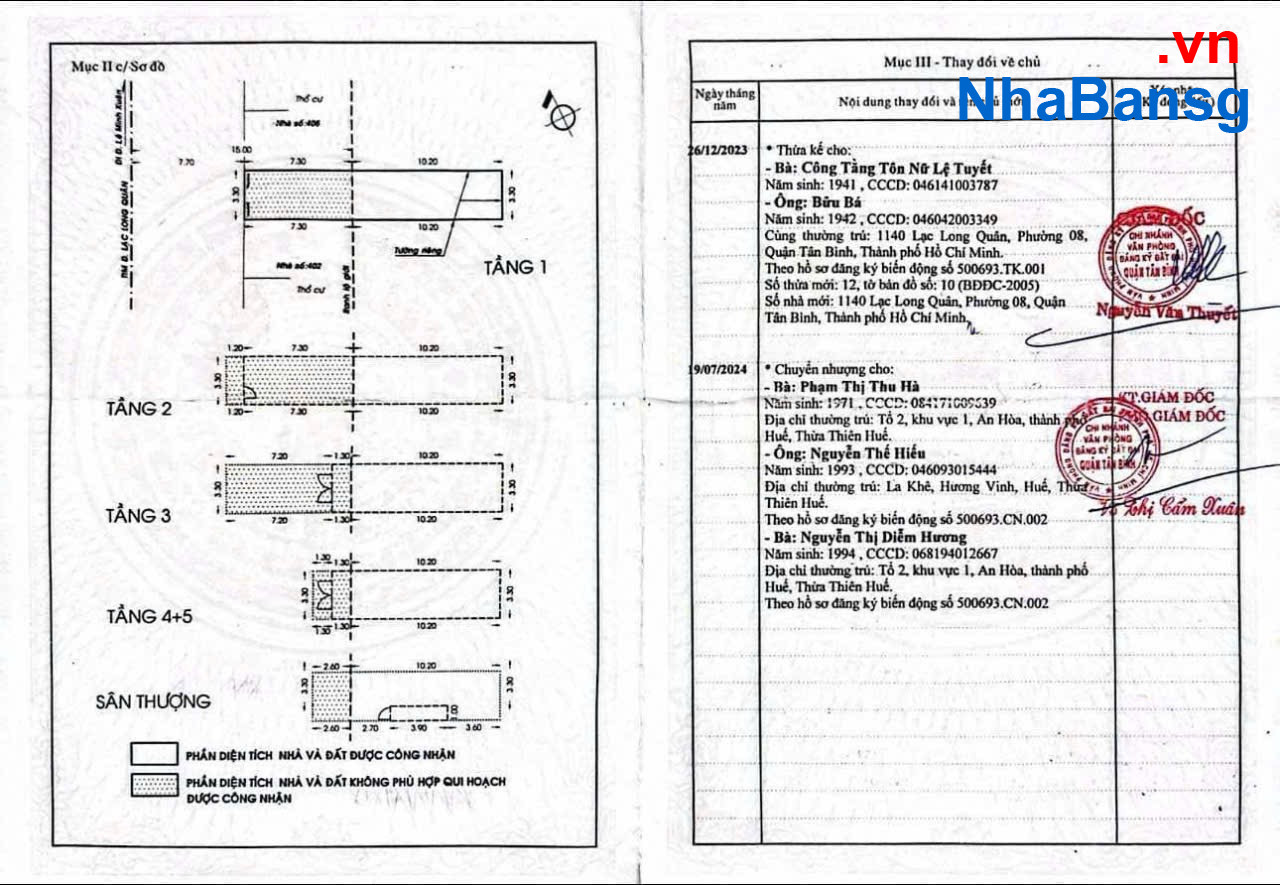 .vn
NhaBansg
Mục II c/ Sơ đồ
Đi Đ. Lê Minh Xuân
TIM Đ. LẠC LONG QUÂN
Thổ cư
Nhà số:406
15.00
7.70
7.30
10.20
3.30
3.30
7.30
10.20
Tường riêng
Nhà số:402
Thổ cư
Ranh lộ giới
TẦNG 1
1.20
7.30
10.20
3.30
3.30
TẦNG 2
1.20
7.30
10.20
7.20
1.30
10.20
3.30
3.30
TẦNG 3
7.20
1.30
10.20
1.30
10.20
3.30
3.30
TẦNG 4+5
1.30
1.30
10.20
2.60
10.20
3.30
3.30
SÂN THƯỢNG
2.60
2.70
3.90
3.60
PHẦN DIỆN TÍCH NHÀ VÀ ĐẤT ĐƯỢC CÔNG NHẬN
PHẦN DIỆN TÍCH NHÀ VÀ ĐẤT KHÔNG PHÙ HỢP QUI HOẠCH
ĐƯỢC CÔNG NHẬN
Mục III - Thay đổi về chủ
Ngày tháng
năm
Nội dung thay đổi và tên chủ mới
26/12/2023
* Thừa kế cho:
- Bà: Công Tằng Tôn Nữ Lệ Tuyết
Năm sinh: 1941 , CCCD: 046141003787
- Ông: Bửu Bá
Năm sinh: 1942 , CCCD: 046042003349
Cùng thường trú: 1140 Lạc Long Quân, Phường 08,
Quận Tân Bình, Thành phố Hồ Chí Minh.
Theo hồ sơ đăng ký biến động số 500693.TK.001
Số thửa mới: 12, tờ bản đồ số: 10 (BĐĐC-2005)
Số nhà mới: 1140 Lạc Long Quân, Phường 08, Quận
Tân Bình, Thành phố Hồ Chí Minh
ĐỐC
CHI NHÁNH
VĂN PHÒNG
ĐĂNG KÝ ĐẤT ĐAI
QUẬN TÂN BÌNH
Nguyễn Văn Thuyết
19/07/2024
* Chuyển nhượng cho:
- Bà: Phạm Thị Thu Hà
Năm sinh: 1971 , CCCD: 084171009639
Địa chỉ thường trú: Tổ 2, khu vực 1, An Hòa, thành phố
Huế, Thừa Thiên Huế.
- Ông: Nguyễn Thế Hiếu
Năm sinh: 1993 , CCCD: 046093015444
Địa chỉ thường trú: La Khê, Hương Vinh, Huế, Thừa
Thiên Huế.
Theo hồ sơ đăng ký biến động số 500693.CN.002
- Bà: Nguyễn Thị Diễm Hương
Năm sinh: 1994 , CCCD: 068194012667
Địa chỉ thường trú: Tổ 2, khu vực 1, An Hòa, thành phố
Huế, Thừa Thiên Huế.
Theo hồ sơ đăng ký biến động số 500693.CN.002
KT.GIÁM ĐỐC
GIÁM ĐỐC
CHI NHÁNH
VĂN PHÒNG
ĐĂNG KÝ ĐẤT ĐAI
QUẬN TÂN BÌNH
Thị Cẩm Xuân